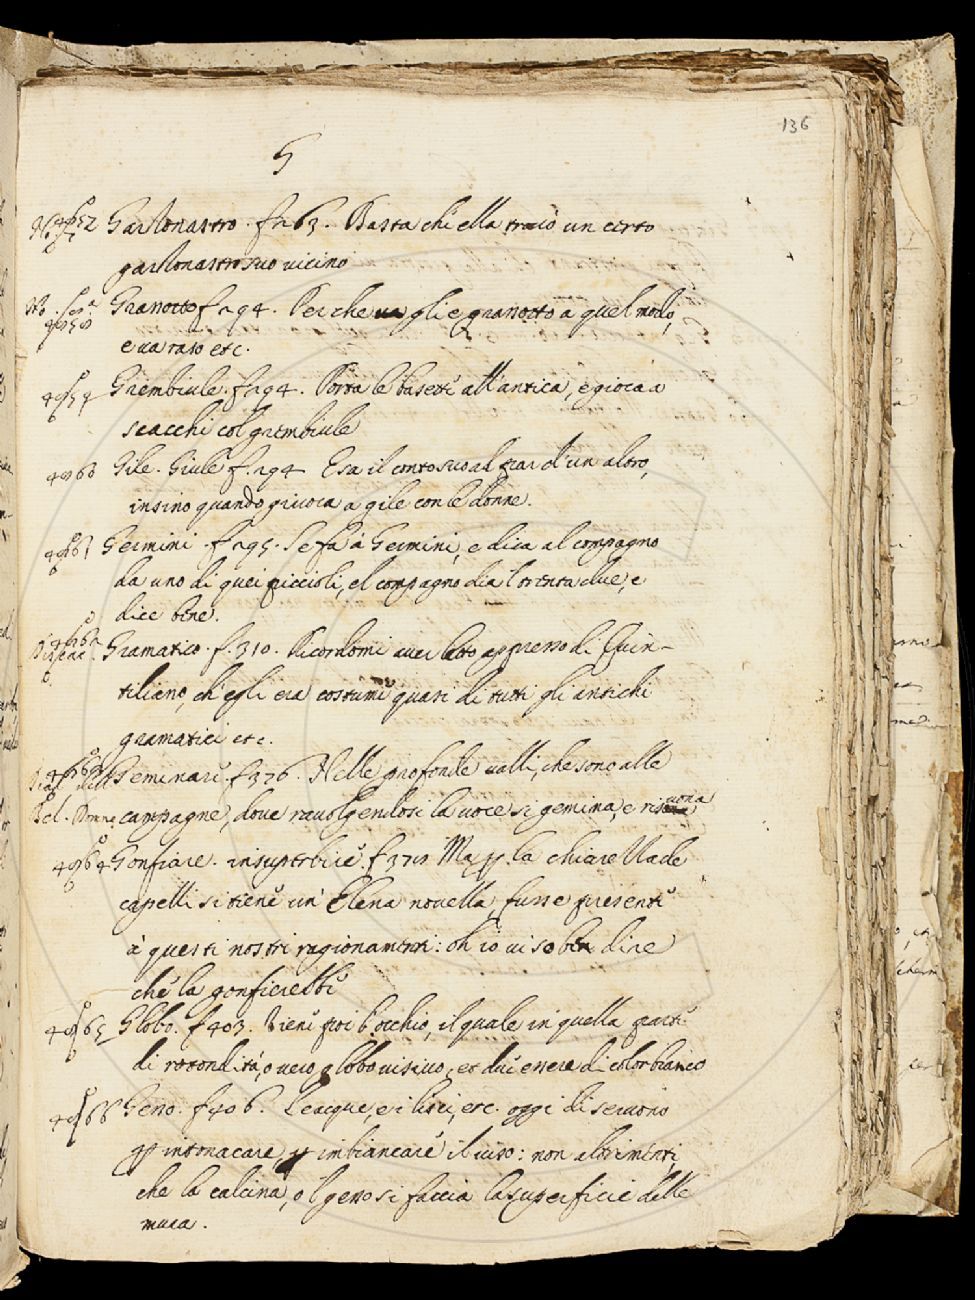 136
G
Garzonastro. f 263. Basta ch'ella tracò un certo
garzonastro suo vicino
Granotto f 294. Perche gli è granotto a quel modo,
e va raso etc.
Grembiule. f 294. Porta le basette all'antica, e gioca a
scacchi col grembiule
Gile. Giule f. 294 Esa il conto suo al par d'un altro,
insino quando giuoca a gile con le donne.
Germini. f 295. Se fa à Germini, e dica al compagno
da uno di quei piccioli, el compagno dia 'l trenta due, e
dice bene.
Gramatico. f. 310. Ricordomi aver letto appresso di Quin-
tiliano, ch'egli era costume quasi di tutti gli antichi
gramatici etc.
Geminare. f 326. Nelle profonde valli, che sono alle
Bel. Donne campagne, dove ravolgendosi la voce si gemina, e risuona
Gonfiare. insuperbire. f 371 la chiare Ma de
capelli si tiene un' Elena novella, fusse presente
à questi nostri ragionamenti: oh io vi so ben dire
che la gonfierebbe
Globo. f 403. Viene poi l'occhio, il quale in quella parte
di rotondità, overo globo visivo, et dee essere di color bianco
Gesso. f 406. Le acque, e i lisci, etc. oggi di servono
p intonacare, p imbiancare il viso: non altrimenti,
che la calcina, o 'l gesso si faccia la superficie delle
mura.